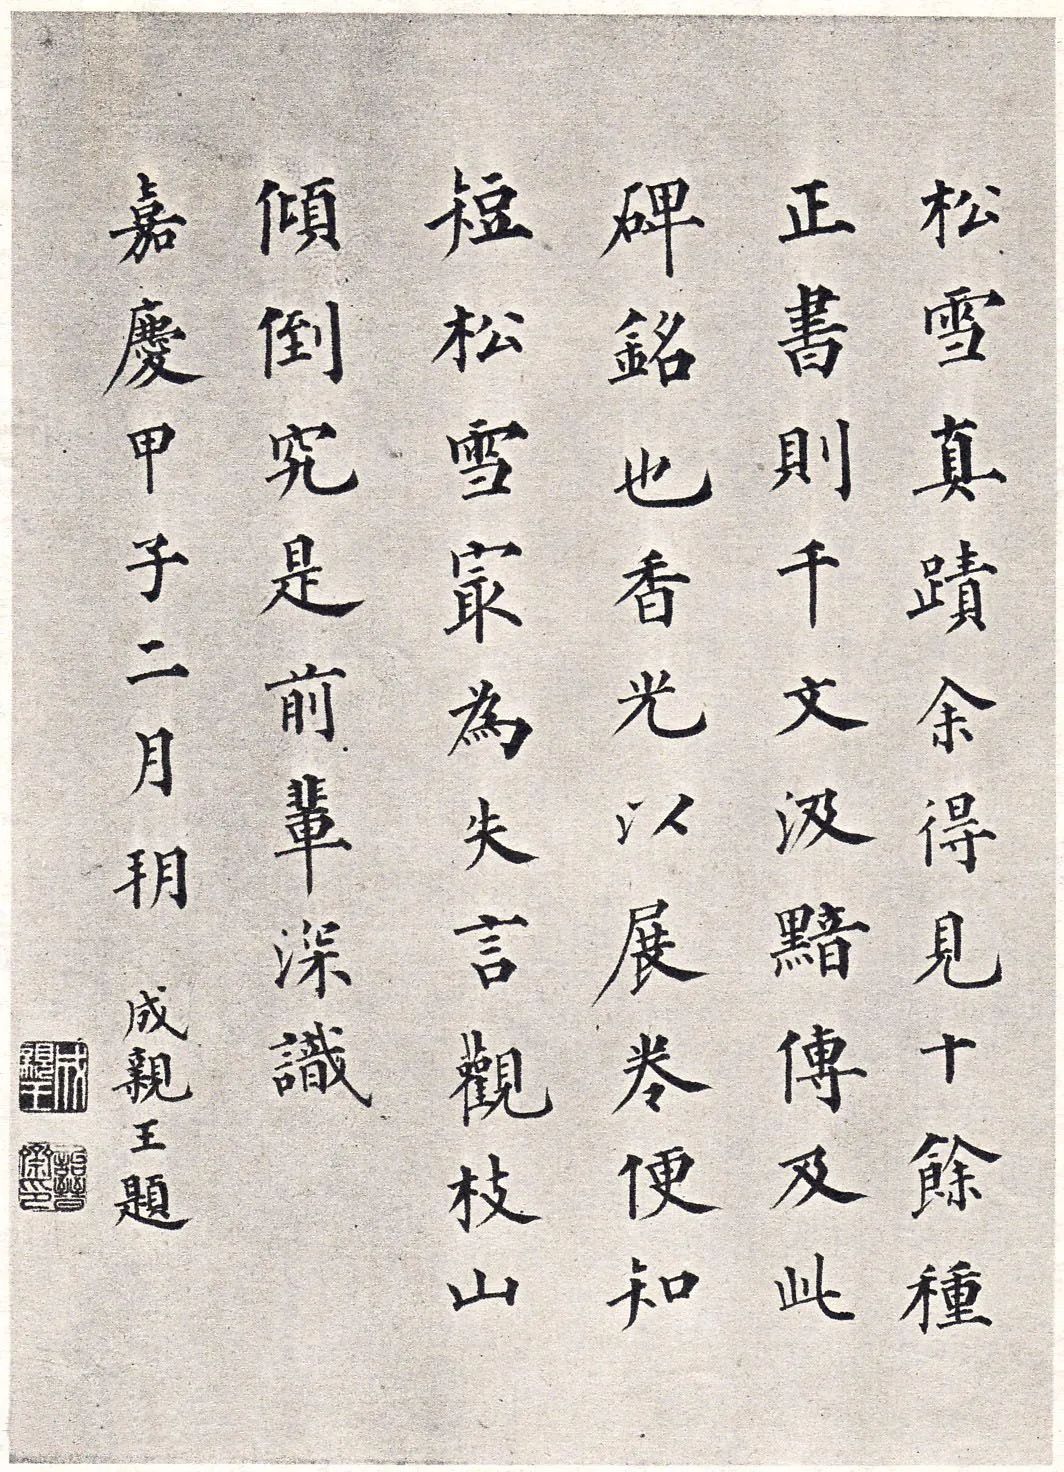 松雪真蹟余得見十餘種
正書則千文汲黯傳及此
碑銘也香光以展卷便知
短松雪寂為失言觀枝山
傾倒究是前輩深識
嘉慶甲子二月朔
成親王題
成親王
詒晉齋印